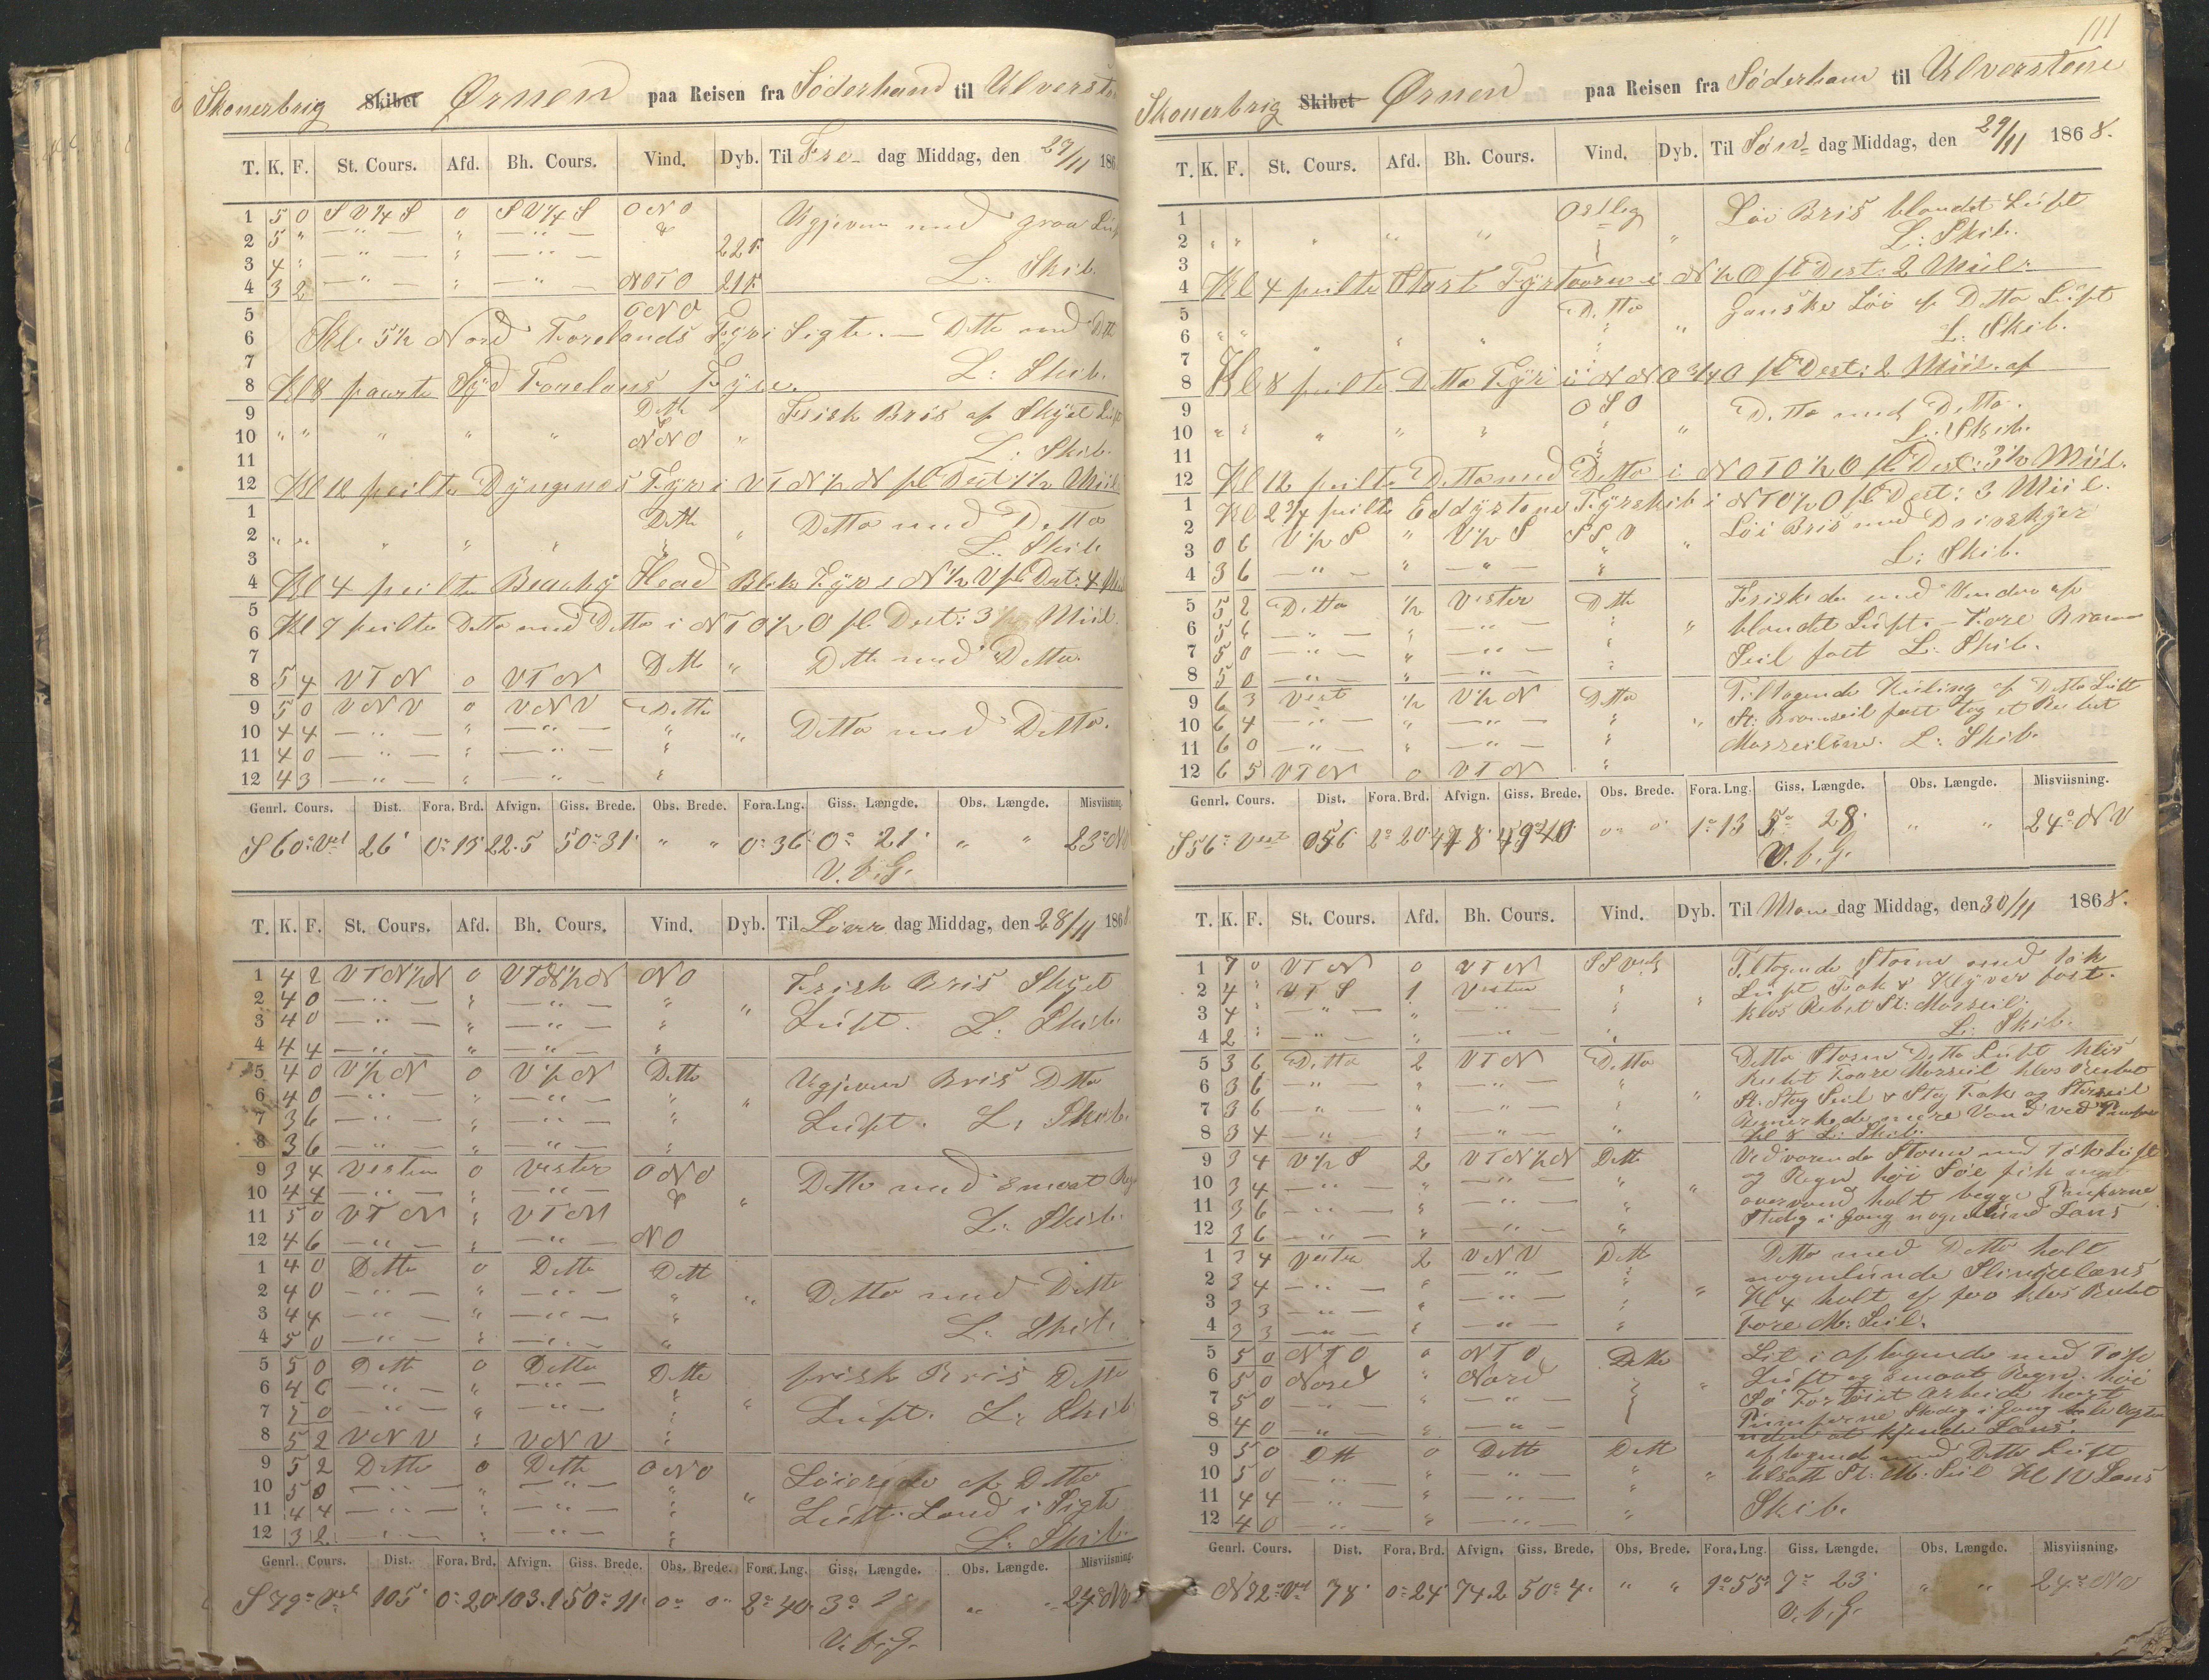 Skonerbrig Skibet Ørnen paa Reisen fra Söderhamn til Ulversto
T. K. F. St. Cours. Afd. Bh. Cours. Vind. Dyb. Til Fre dag Middag, den 27/11 186
1 5 0 S V ¼ S 0 S V ¼ S O N O Ugjevn med graa Luft
2 5 " — " — " — " — & 22 f.
3 4 " — " — " — " — L: Skib.
4 3 2 — " — " — " — N O T O 21 f.
5 O N O
6 Kl. 5½ Nord Forelands Fyr i Sigte. — Ditto med Ditto
7 L: Skib.
8 Kl 8 Syd Forelands Fyre.
9 Ditto Frisk Bris af Skyet Luft
10 " " " " " N N O "
11 L: Skib.
12 Kl 12 peilte Dyngenes Fyr i V T N ½ N pC Dist 1½ Miil
1 Ditto Ditto med Ditto
2 " " " " " "
3 L: Skib.
4 Kl 4 peilte Beachy Head Blik Fyr i N ½ V pC Dist: 4 Miil
5
6 Kl 7 peilte Ditto med Ditto i N T O ½ O pC Dist: 3½ Miil.
7 Ditto " Ditto med Ditto.
8 5 4 V T N 0 V T N
9 5 0 V N V 0 V N V Ditto
10 4 4 — " — " — " — " " Ditto med Ditto.
11 4 0 — " — " — " — "
12 4 3 — " — " — " — "
Genrl. Cours. Dist. Fora. Brd. Afvign. Giss. Brede. Obs. Brede. Fora. Lng. Giss. Længde. Obs. Længde. Misviisning.
S 60° Vest 26' 0° 13 22.5 50° 31' " " 0° 36' 0° 21' " " 23° NV
V. f. G.
T. K. F. St. Cours. Afd. Bh. Cours. Vind. Dyb. Til Löver dag Middag, den 28/11 1868
1 4 2 V T N ½ N 0 V T N ½ N N O Frisk Bris Skyet
2 4 0 — " — " — " — " "
3 4 0 — " — " — " — " Luft. L: Skib.
4 4 4 — " — " — " — "
5 4 0 V ½ N 0 V ½ N Ditto Ugjevn Bris Ditto
6 4 0 — " — " — " — " "
7 3 6 — " — " — " — " Luft. L: Skib.
8 3 6 — " — " — " — "
9 3 4 Vesten 0 Vester O N O Ditto med smaat Reg
10 4 4 — " — " — " — & "
11 5 0 V T N " V T N L: Skib.
12 4 6 — " — " — " — N O
1 4 0 Ditto 0 Ditto Ditto
2 4 0 — " — " — " — " " Ditto med Ditto
3 4 4 — " — " — " — "
4 5 0 — " — " — " — " L. Skib.
5 5 0 Ditto 0 Ditto Ditto frisk Bris Ditto
6 4 6 — " — " — " — "
7 5 0 — " — " — " — " " Luft. L: Skib
8 5 2 V N V " V N V "
9 5 2 Ditto 0 Ditto O N O Löierede af Ditto
10 5 0 — " — " — " — " "
11 4 4 — " — " — " — " Luft. Land i Sigte
12 3 2 — " — " — " — " L. Skib.
Genrl. Cours. Dist. Fora. Brd. Afvign. Giss. Brede. Obs. Brede. Fora. Lng. Giss. Længde. Obs. Længde. Misviisning.
S 79° Vest 105' 0° 20 103.1 50° 11' 0° 0" 2° 40' 3° 1' " " 24° NV
V. f. G.
111
Skonerbrig Skibet Ørnen paa Reisen fra Söderham til Ulverstone
T. K. F. St. Cours. Afd. Bh. Cours. Vind. Dyb. Til Søn dag Middag, den 29/11 1868.
1 Ostlig Löi Bris blandet Luft
2 " " " " " "
3 L: Skib.
4 Kl 4 peilte Start Fyrtaarn i N ½ O pC Dist: 2 Miil.
5 Ditto Ganske Löi af Ditto Luft
6 " " " " " " "
7 L. Skib.
8 Kl 8 peilte Ditto Fyr i N N O ¾ O pC Dist: 2 Miil. af
9 O S O Ditto med Ditto.
10 " " " " " " "
11 L. Skib.
12 Kl 12 peilte Ditto med Ditto i N O T O ½ O pC Dist: 3½ Miil.
1 Kl 2¾ peilte Eddystone Fyrskib i N T O ½ O pC Dist: 3 Miil.
2 Löi Bris med Drivskyer
3 0 6 V ½ S " V ½ S S S V "
4 3 6 — " — " — " — " L: Skib.
5 5 2 Ditto ½ Vester Ditto Friskede med Vinden af
6 5 6 — " — " — " — " " blandet Luft. — Fore Bram
7 5 0 — " — " — " — " Seil fast L: Skib.
8 5 0 — " — " — " — "
9 6 3 Vest ½ V ½ N Ditto Tiltagende Kuling af Ditto Luft
10 6 4 — " — " — " — " " St: Bramseil fast tog et Reb ut
11 6 0 — " — " — " — " Merseilene. L: Skib.
12 6 5 V T N 0 V T N "
Genrl. Cours. Dist. Fora. Brd. Afvign. Giss. Brede. Obs. Brede. Fora. Lng. Giss. Længde. Obs. Længde. Misviisning.
S 56° Vest 56' 1° 13 5° 28' " " 24° NV
V. f. G.
T. K. F. St. Cours. Afd. Bh. Cours. Vind. Dyb. Til Man dag Middag, den 30/11 1868.
1 7 0 V T N 0 V T N S S Vest Tiltagende Storm med tyk
2 4 " V T S 1 Vester " Luft Fok & Klyver fast.
3 4 " — " — " — " — " " klos Rebet St: Merseil.
4 2 " — " — " — " — " L: Skib.
5 3 6 Ditto 2 V T N Ditto Ditto Storm Ditto Luft klos
6 3 6 — " — " — " — " Rebet Foore Merseil klos Rebet
7 3 6 — " — " — " — " " St. Stag Seil & Stag Fok og Storseil
8 3 4 — " — " — " — " Bemerkede mere Vand ved Pumpen
Kl 8 L: Skib.
9 3 4 V ½ S 2 V T N ½ N Ditto Vedvarende Storm med tyk Luft
10 3 4 — " — " — " — " og Regn höi Söe fik meget
11 3 6 — " — " — " — " " overvand holt begge Pumperne
12 3 6 — " — " — " — " Stedig i Gang nogenlund Lens
1 3 4 Vester 2 V N V Ditto Ditto med Ditto holt
2 3 4 — " — " — " — " nogenlunde
3 3 3 — " — " — " — " " Kl 4 holt af for klos Rebet
4 3 3 — " — " — " — " Fore M: Seil.
5 5 0 N T O 0 N T O Ditto Lit i aftagende med Tyk
6 5 0 Nord " Nord Luft og smaat Regn. höi
7 5 0 — " — " — " — " Sö Forlöist Arbeide hart
8 4 0 — " — " — " — Pumperne Stedig i Gang hele Vagten
uden at kjende Lens.
9 5 0 Ditto 0 Ditto Ditto aftagende med Ditto Luft
10 5 0 — " — " — " — " " tilsatte St: M: Seil Kl 10 Lens
11 4 4 — " — " — " — " Skib.
12 4 0 — " — " — " — "
Genrl. Cours. Dist. Fora. Brd. Afvign. Giss. Brede. Obs. Brede. Fora. Lng. Giss. Længde. Obs. Længde. Misviisning.
N 72° Vest 78' 0° 24' 74.2 50° 4' " " 1° 55' 7° 23' " " 24° NV
V. f. G.